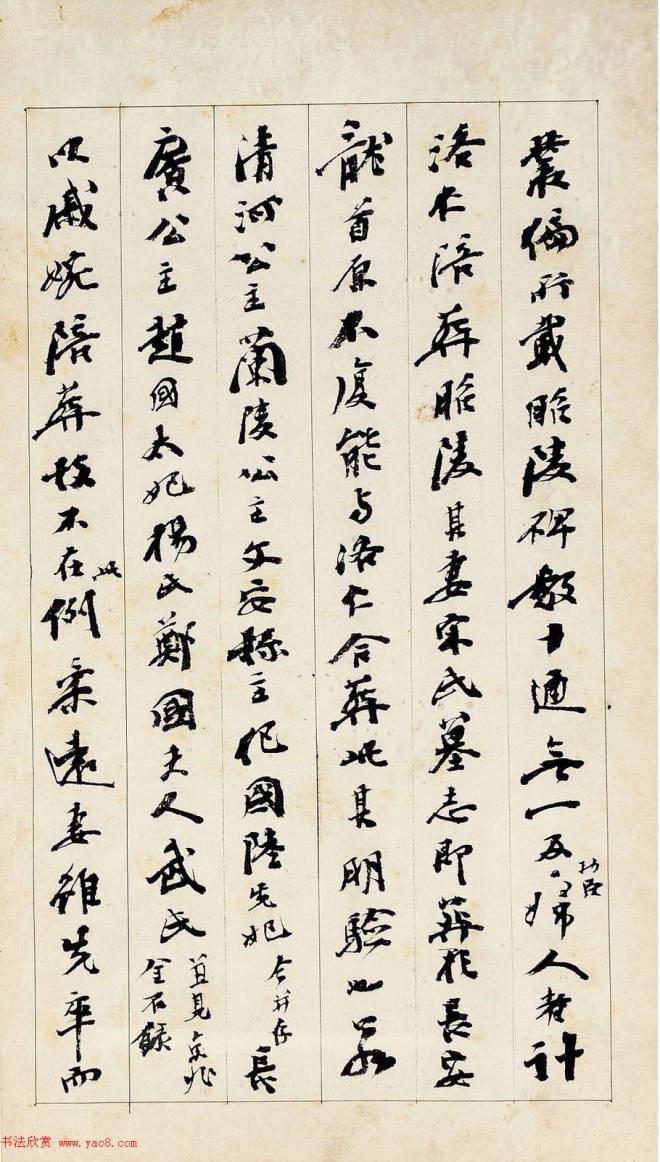 叢編所載昭陵碑數十通無一及婦人者許
洛仁陪葬昭陵其妻宋氏墓志即葬於長安
龍首原不復能与洛仁合葬此其明驗也若
清河公主蘭陵公主文安縣主紀國陸先妃今并存長
廣公主趙國太妃楊氏鄭國夫人武氏並見京兆金石錄
以戚婉陪葬故不在此例柔遠妻雖先卒而
书法欣赏 www.yac8.com